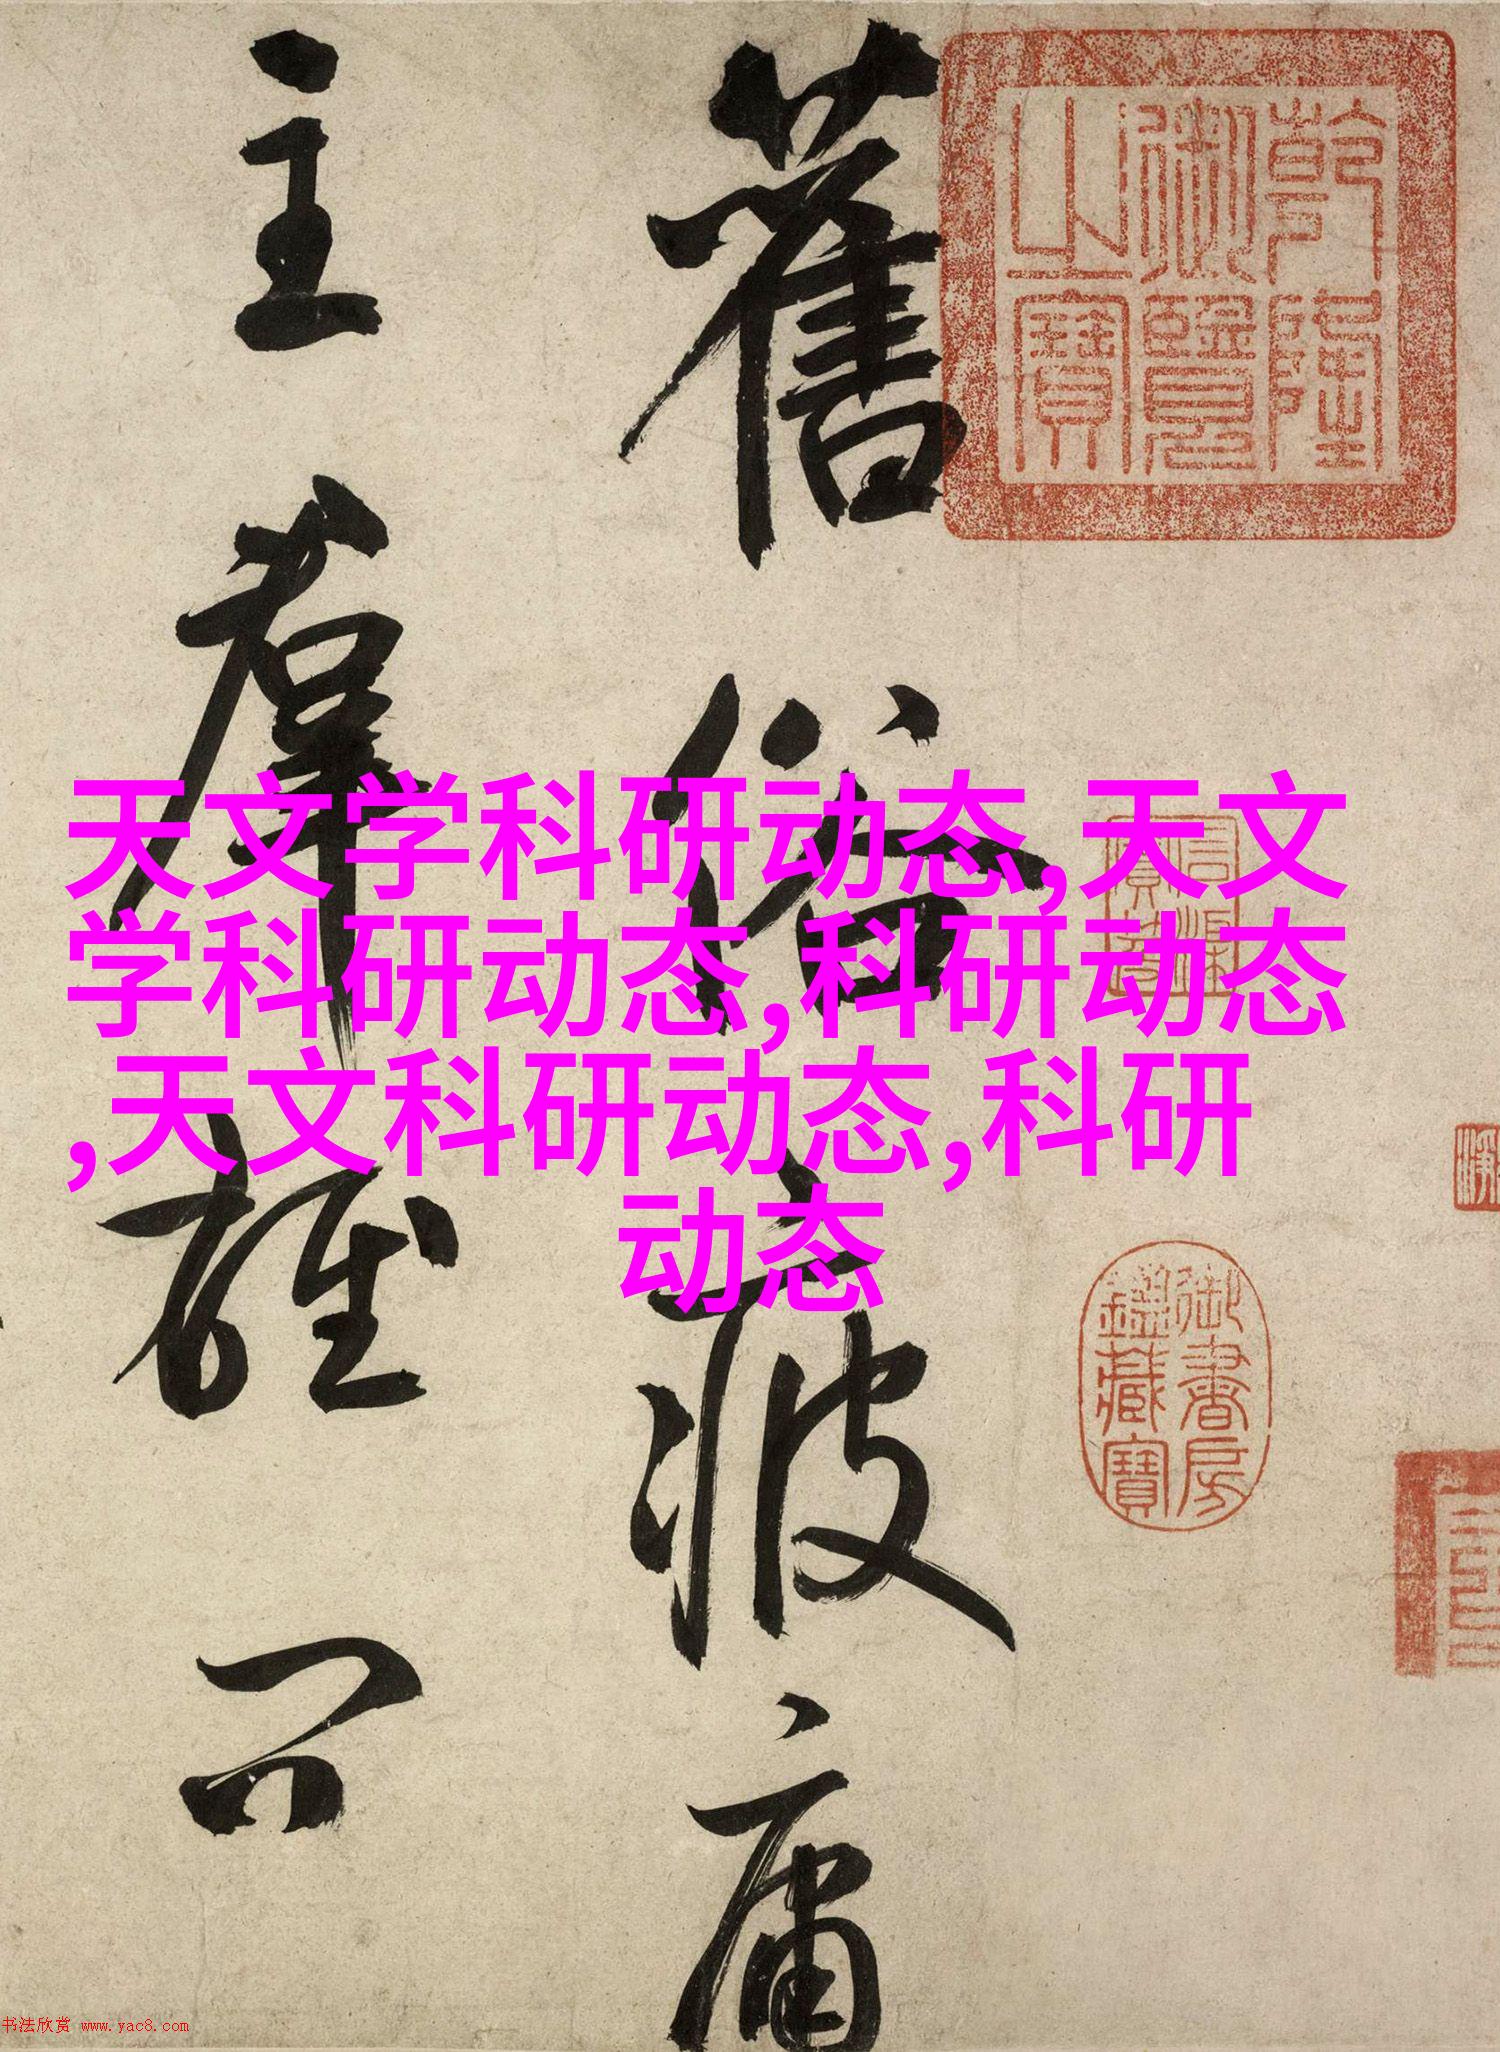 舊俗疲庸
主羣雄问
乾隆
御覽
之寶
御書房
鑑藏寶
天文学科研动态,天文
学科研动态,科研动态
,天文科研动态,科研
动态
书法欣赏 www.yac8.com